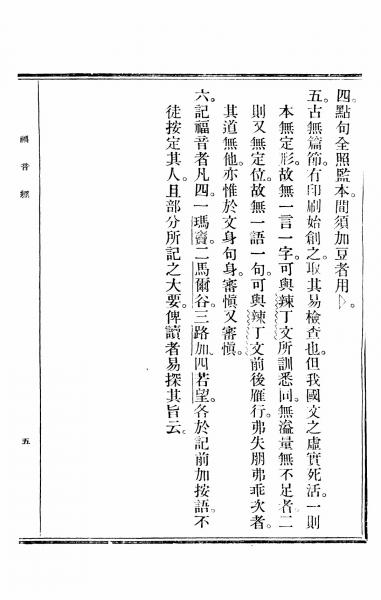 四。點句全照監本。間須加豆者用▷。
五。古無篇節。有印刷始創之。取其易檢查也。但我國文之虛實死活。一則
本無定形。故無一言一字。可與辣丁文所訓悉同。無溢量無不足者。二
則又無定位。故無一語一句。可與辣丁文前後雁行。弗失朋弗乖次者。
其道無他。亦惟於文身句身。審愼又審愼。
六。記福音者凡四。一瑪竇。二馬爾谷。三路加。四若望。各於記前加按語。不
徒按定其人。且部分所記之大要。俾讀者易探其旨云。
福音經
五